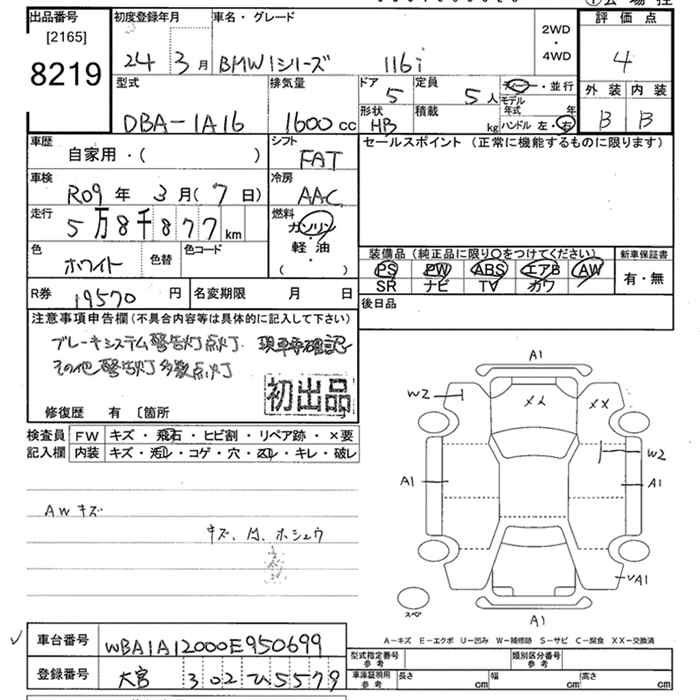 出品番号 初度登録年月 車名・グレード 2WD 評価点
[2165] ・
8219 24 3月 BMW1シリーズ 116i 4WD 4
型式 排気量 ドア 5 定員 5人 ディーラー・並行 外装 内装
モデル年式 年
DBA-1A16 1600cc 形状 HB 積載 kg ハンドル 左・右 B B
車歴 自家用・( ) シフト FAT セールスポイント (正常に機能するものに限ります)
車検 R09年 3月(7日) 冷房 AAC
走行 5万8千877km 燃料 ガソリン
軽・油
( )
色 ホワイト 色替 色コード 装備品 (純正品に限り○をつけてください) 新車保証書
PS PW ABS エアB AW 有・無
SR ナビ TV カワ
R券 19570円 名変期限 月 日 後日品
注意事項申告欄(不具合内容等は具体的に記入して下さい)
ブレーキシステム警告灯点灯. 現車要確認
その他警告灯多数点灯
初出品
修復歴 有 〔箇所
検査員 FW キズ・飛石・ヒビ割・リペア跡・×要
記入欄 内装 キズ・汚レ・コゲ・穴・スレ・キレ・破レ
AWキズ
A1
W2 XX
W2
A1 A1
A1
スペ A1
A-キズ E-エクボ U-凹み W-補修跡 S-サビ C-腐食 XX-交換済
車台番号 WBA1A12000E950699 型式指定番号 参考 類別区分番号 参考
登録番号 大宮 302 ひ 5579 車庫証明用 参考 長さ cm 幅 cm 高さ cm